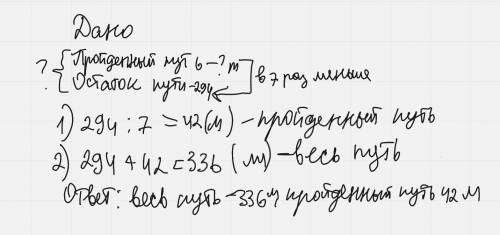 Дано
? { Пройденный путь - ? m
Остаток пути - 294
в 7 раз меньше
1) 294 : 7 = 42 (м) - пройденный путь
2) 294 + 42 = 336 (м) - весь путь
Ответ: весь путь - 336 м пройденный путь 42 м